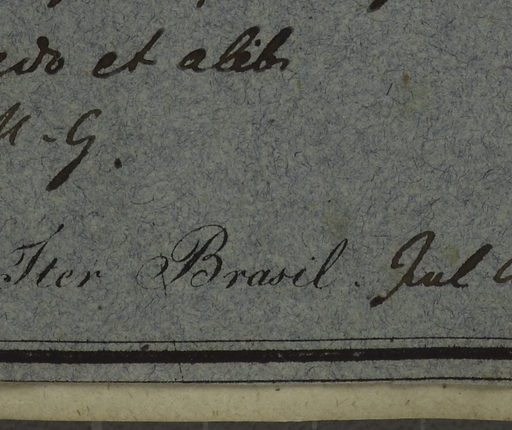 et alibi
M-G.
Iter Brasil. Jul